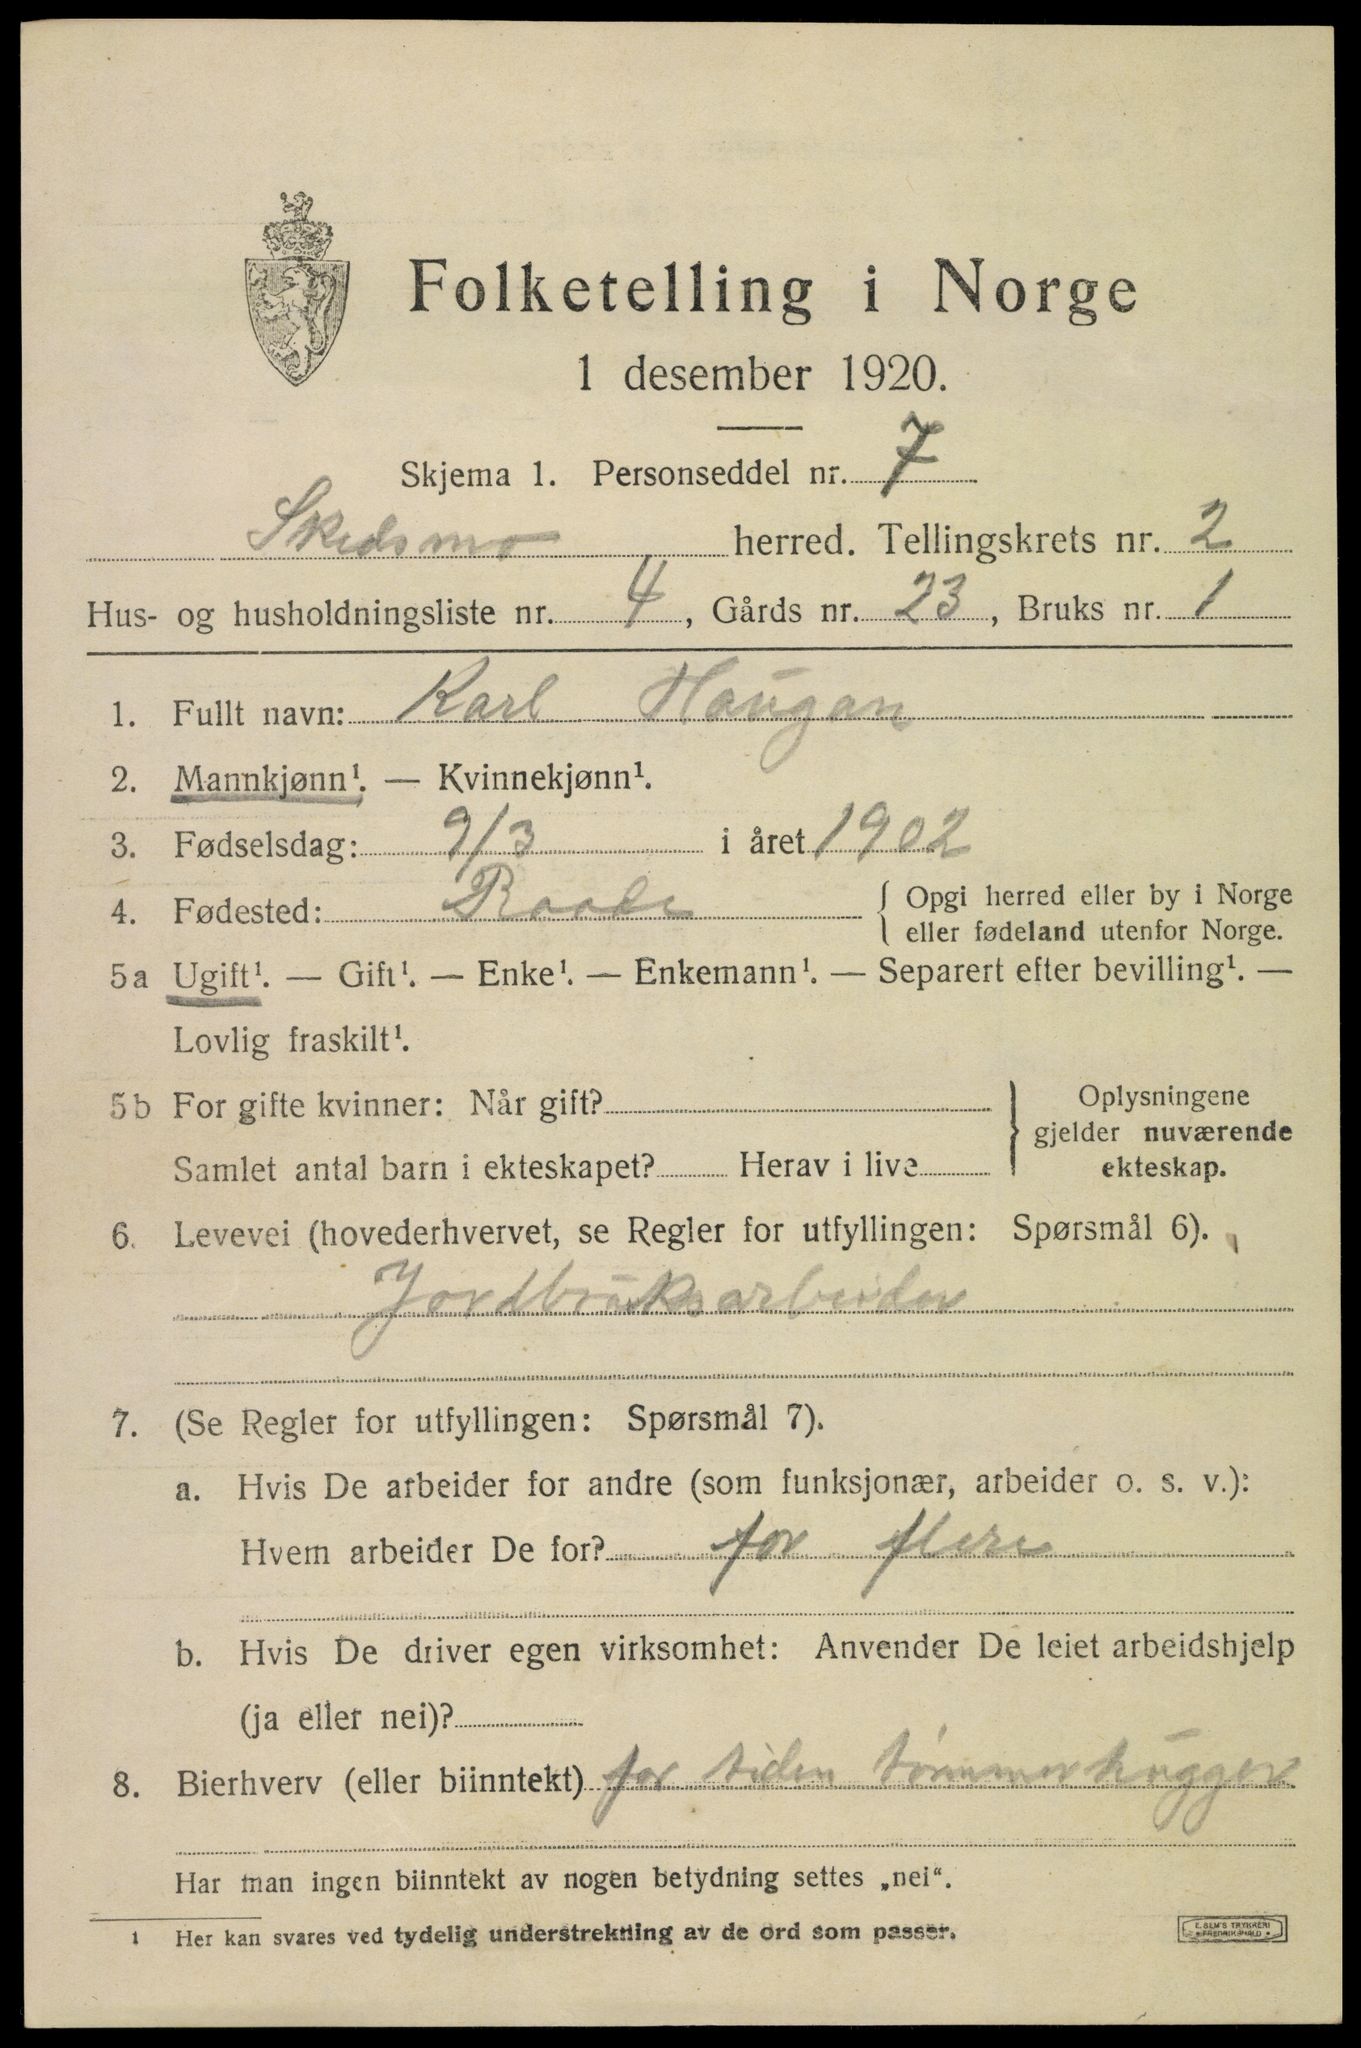 Folketelling i Norge
1 desember 1920.
Skjema 1. Personseddel nr. 7
Skedsmo herred. Tellingskrets nr. 2
Hus- og husholdningsliste nr. 4, Gårds nr. 23, Bruks nr. 1
1. Fullt navn: Karl Haugan
2. Mannkjønn¹. — Kvinnekjønn¹.
3. Fødselsdag: 9/3 i året 1902
4. Fødested: Raade { Opgi herred eller by i Norge
eller fødeland utenfor Norge.
5a Ugift¹. — Gift¹. — Enke¹. — Enkemann¹. — Separert efter bevilling¹. —
Lovlig fraskilt¹.
5b For gifte kvinner: Når gift?
Samlet antal barn i ekteskapet? Herav i live
} Oplysningene
gjelder nuværende
ekteskap.
6. Levevei (hovederhvervet, se Regler for utfyllingen: Spørsmål 6).
Jordbruksarbeider
7. (Se Regler for utfyllingen: Spørsmål 7).
a. Hvis De arbeider for andre (som funksjonær, arbeider o. s. v.):
Hvem arbeider De for? for flere
b. Hvis De driver egen virksomhet: Anvender De leiet arbeidshjelp
(ja eller nei)?
8. Bierhverv (eller biinntekt) for tiden tømmerhugger
Har man ingen biinntekt av nogen betydning settes „nei“.
1 Her kan svares ved tydelig understrekning av de ord som passer.
E. SEM'S TRYKKERI
FREDRIKSHALD